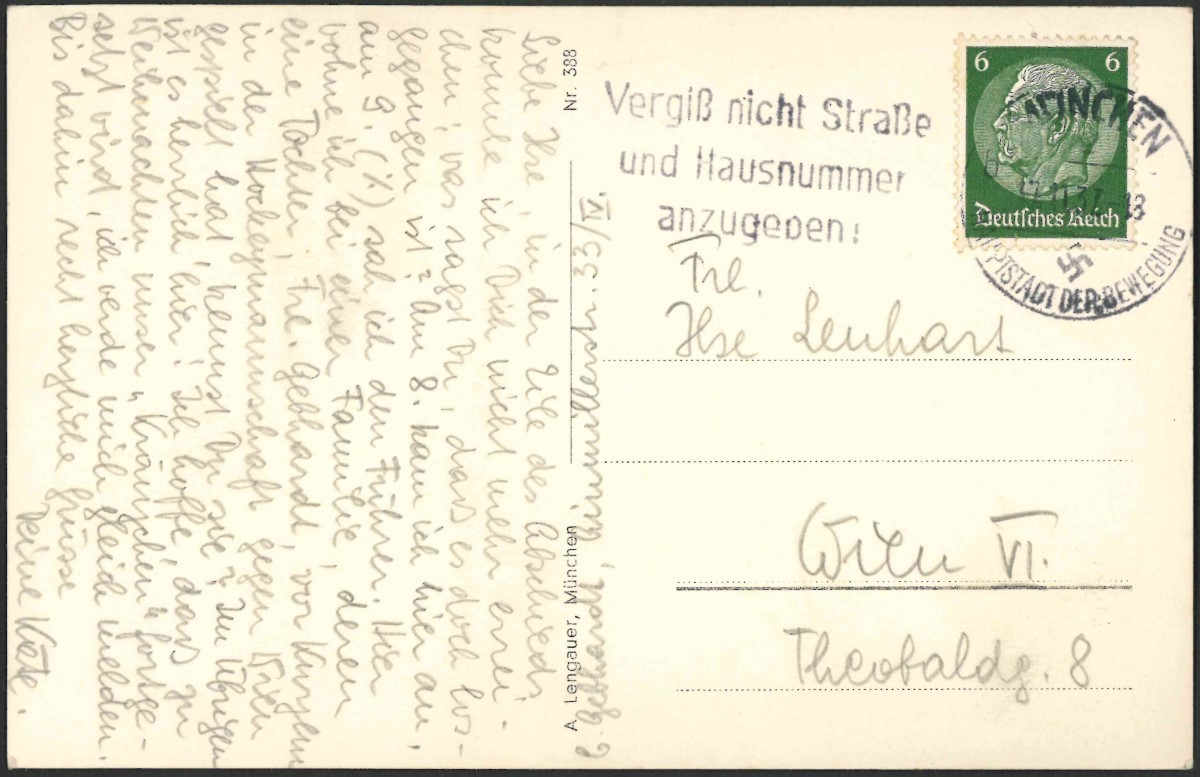 Liebe Ilse, in der Eile des Abschieds
konnte ich Dich nicht mehr errei-
chen, was sagst Du, dass es doch los-
gegangen ist? Am 8. kam ich hier an,
am 9. (!) sah ich den Führer. Hier
wohne ich bei einer Familie, deren
eine Tochter, Frl. Gebhardt, vor Kurzem
in der Hockeymannschaft gegen Wien
gespielt hat, kennst Du sie? Im Übrigen
ist es herrlich hier! Ich hoffe, dass zu
Weihnachten unser "Kränzchen" fortge-
setzt wird, ich werde mich gleich melden.
Bis dahin recht herzliche Grüsse
Deine Käte.
Gebhardt, Ainmillerstr. 33/IV.
Nr. 388
A. Lengauer, München
Vergiß nicht Straße
und Hausnummer
anzugeben!
6 6
Deutsches Reich
MÜNCHEN
11.37
HAUPTSTADT DER BEWEGUNG
Frl.
Ilse Lenhart
Wien VI.
Theobaldg. 8